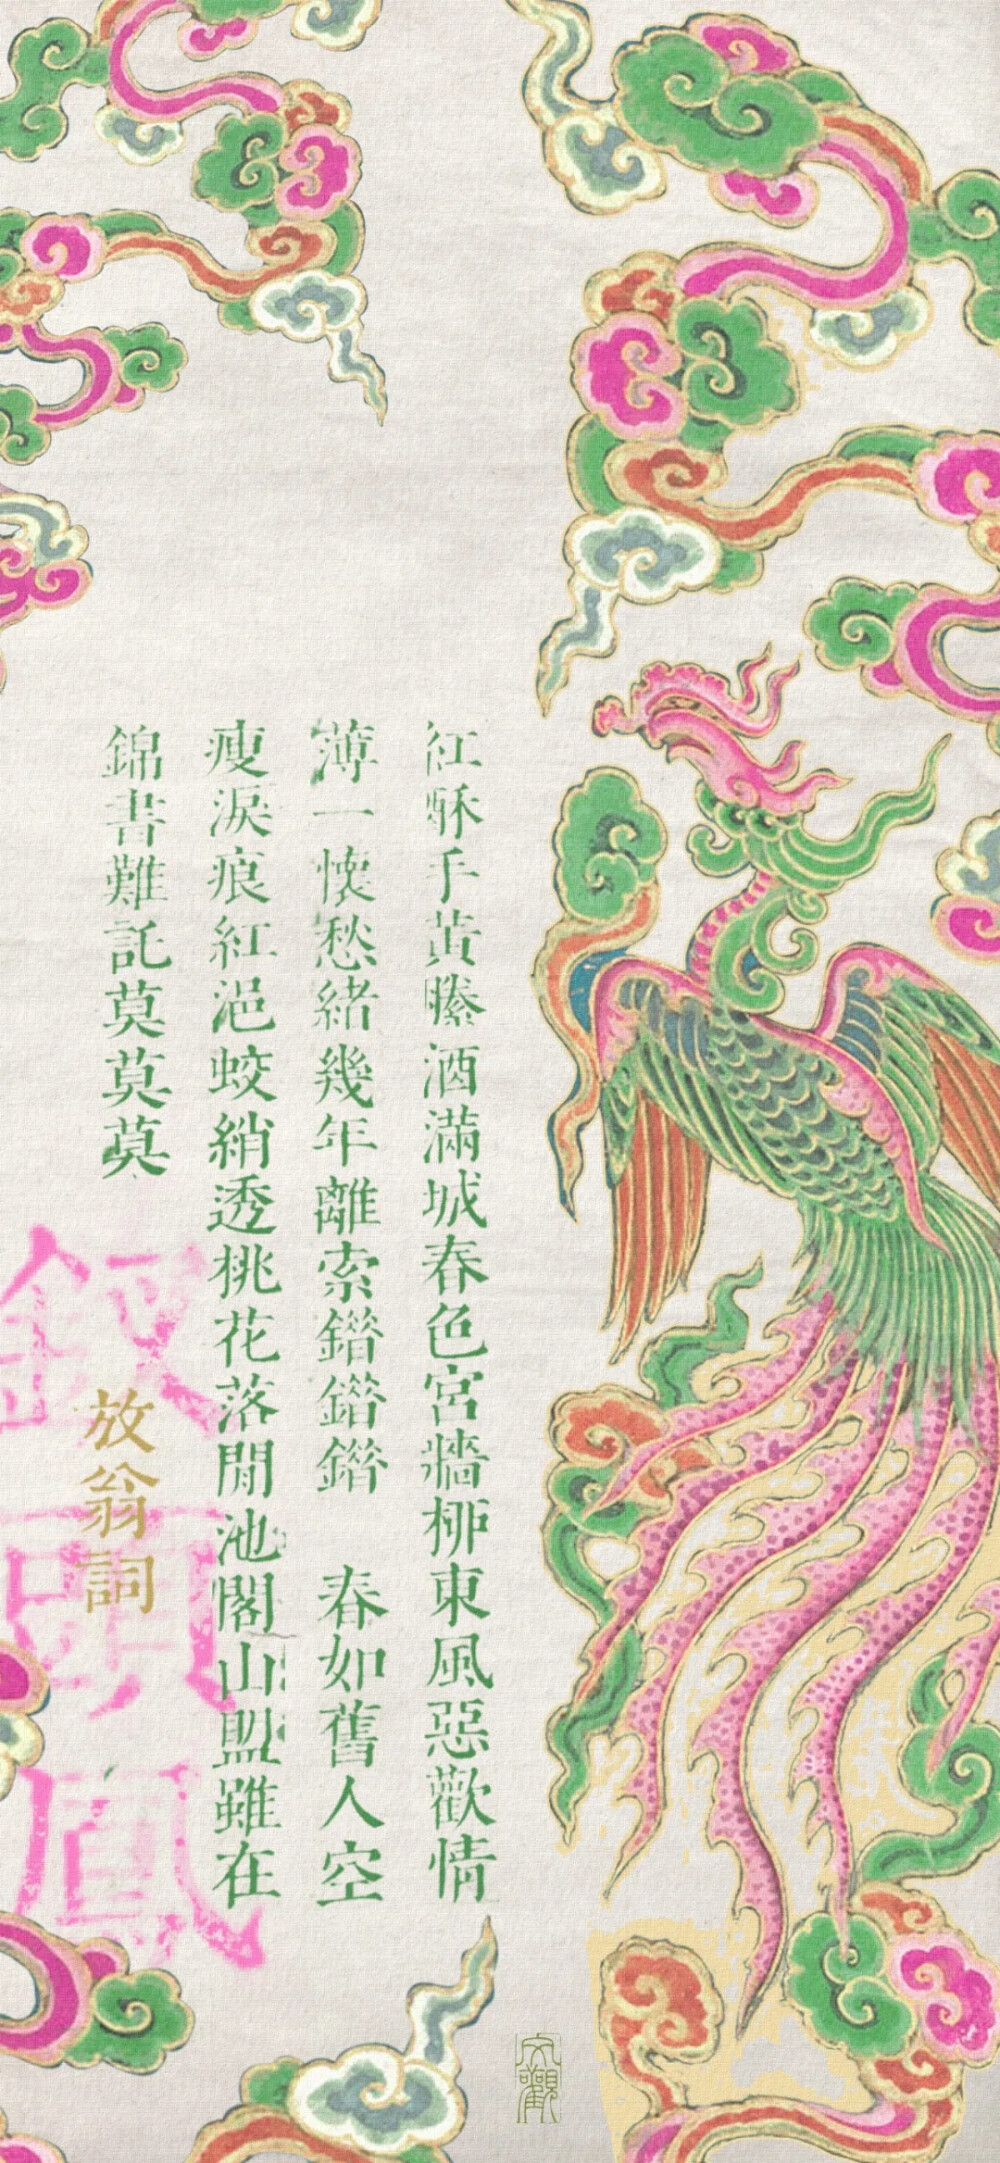 紅酥手黃縢酒滿城春色宮牆栁東風惡歡情
薄一懷愁緒幾年離索錯錯錯　春如舊人空
瘦淚痕紅浥蛟綃透桃花落閒池閣山盟雖在
錦書難託莫莫莫
放翁詞
釵頭鳳
文觀